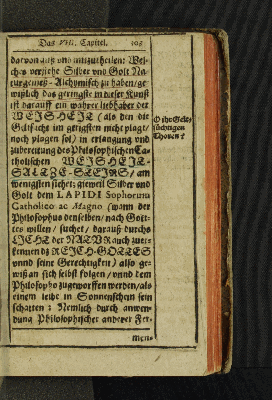 Das VIII. Capitel. 303
darvon auß vnd mitzutheilen: Wel-
ches verstehe Silber vnd Golt Na-
turgemeß-Alchymisch zu haben/ge-
wißlich das geringste in dieser Kunst
ist darauff ein wahrer liebhaber der
WEISHEIT (als den die
Geltsucht im geringsten nicht plagt/
noch plagen sol) in erlangung vnd
zubereitung des Philosophischen Ca-
tholischen WEISHEIT-
SALTZE-STEINS/ am
wenigsten siehet: gieweil Silber vnd
Golt dem LAPIDI Sophorum
Catholico ac Magno (wann der
Philosophus denselben/nach Gott-
tes willen/ suchet/ darauß durchs
LICHT der NATUR auch zuer-
kennen dz REICH-GOTTES
vnnd seine Gerechtigkeit/ also ge-
wiß an sich selbst folgen/vnnd dem
Philosopho zugeworffen werden/als
einem leibe in Sonnenschein sein
schatten: Nemlich durch anwen-
dung Philosophischer anderer Fer-
men-
O ihr Gelt-
süchtigen
Thoren?